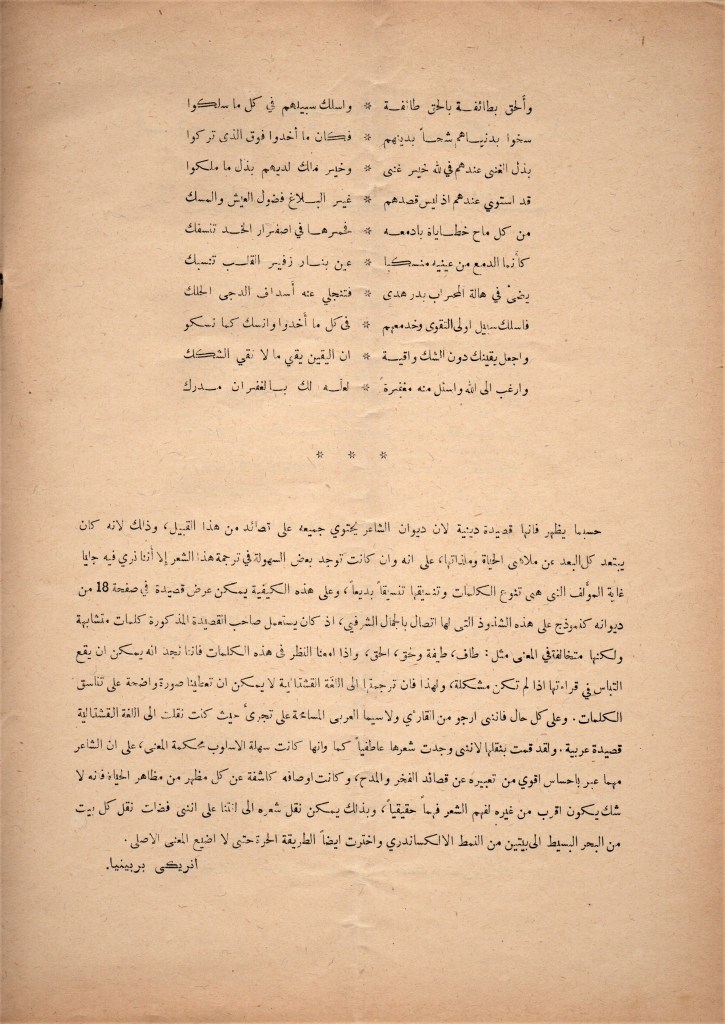 وألحق بطائفة بالحق طائفة * واسلك سبيلهم في كل ما سلكوا
سخوا بدنياهم شحاً بدينهم * فكان ما أخدوا فوق الذى تركوا
بذل الغنى عندهم في لله خير غنى * وخير ملك لديهم بذل ما ملكوا
قد استوي عندهم اذ ليس قصدهم * غير البلاغ فضول العيش والمسك
من كل ماح خطاياة بادمعه * فحمرها في اصفرار الخد تنسفك
كأنما الدمع من عينيه منسكبا * عين بنار زفير القلب تنسبك
يضئ في هالة المحراب بدر هدى * فتنجلي عنه أسداف الدجى الحلك
فاسلك سبيل اولى التقوى وخدمعهم * فى كل ما أخدوا وانسك كما نسكو
واجعل يقينك دون الشك واقية * ان اليقين يقي ما لا تقي الشكك
وارغب الى الله واسئل منه مغفرة * لعله لك بالغفران مدرك
* * *
حسبما يظهر فانها قصيدة دينية لان ديوان الشاعر يحتوي جميعه على قصائد من هذا القبيل، وذالك لانه كان
يبتعد كل البعد عن ملاهى الحياة وملذاتها، على انه وان كانت توجد بعض السهولة في ترجمة هذا الشعر إلا أننا نري فيه جليا
غاية المؤلف التى هى تنوع الكلمات وتنسيقها تنسيقاً بديعاً، وعلى هذه الكيفية يمكن عرض قصيدة في صفحة 18 من
ديوانه كنموذج على هذه الشذوذ التى لها اتصال بالجمال الشرقي، اذ كان يستعمل صاحب القصيدة المذكورة كلمات متشابهة
ولكنها متخالفة في المعنى مثل: طاف، طيفة وحق، الحق، واذا امعنا النظر فى هذه الكلمات فاننا نجد انه يمكن ان يقع
التباس في قراءتها اذا لم تكن مشكلة، ولهذا فان ترجمتها الى اللغة القشتالية لا يمكن ان تعطينا صورة واضحة على تناسق
الكلمات. وعلى كل حال فاننى ارجو من القارئ ولاسيما العربى المسامحة على تجرئ حيث كنت نقلت الى اللغة القشتالية
قصيدة عربية. ولقد قمت بنقلها لاننى وجدت شعرها عاطفياً كما وانها كانت سهلة الاسلوب محكمة المعنى، على ان الشاعر
مهما عبر باحساس اقوي من تعبيره عن قصائد الفخر والمدح، وكانت اوصافه كاشفة عن كل مظهر من مظاهر الحياة فانه لا
شك يكون اقرب من غيره لفهم الشعر فهماً حقيقياً، وبذلك يمكن نقل شعره الى لغتنا على اننى فضلت نقل كل بيت
من البحر البسيط الى بيتين من النمط الالكساندري واخترت ايضاً الطريقة الحرة حتى لا اضيع المعنى الاصلى.
انريكى بربينيا.